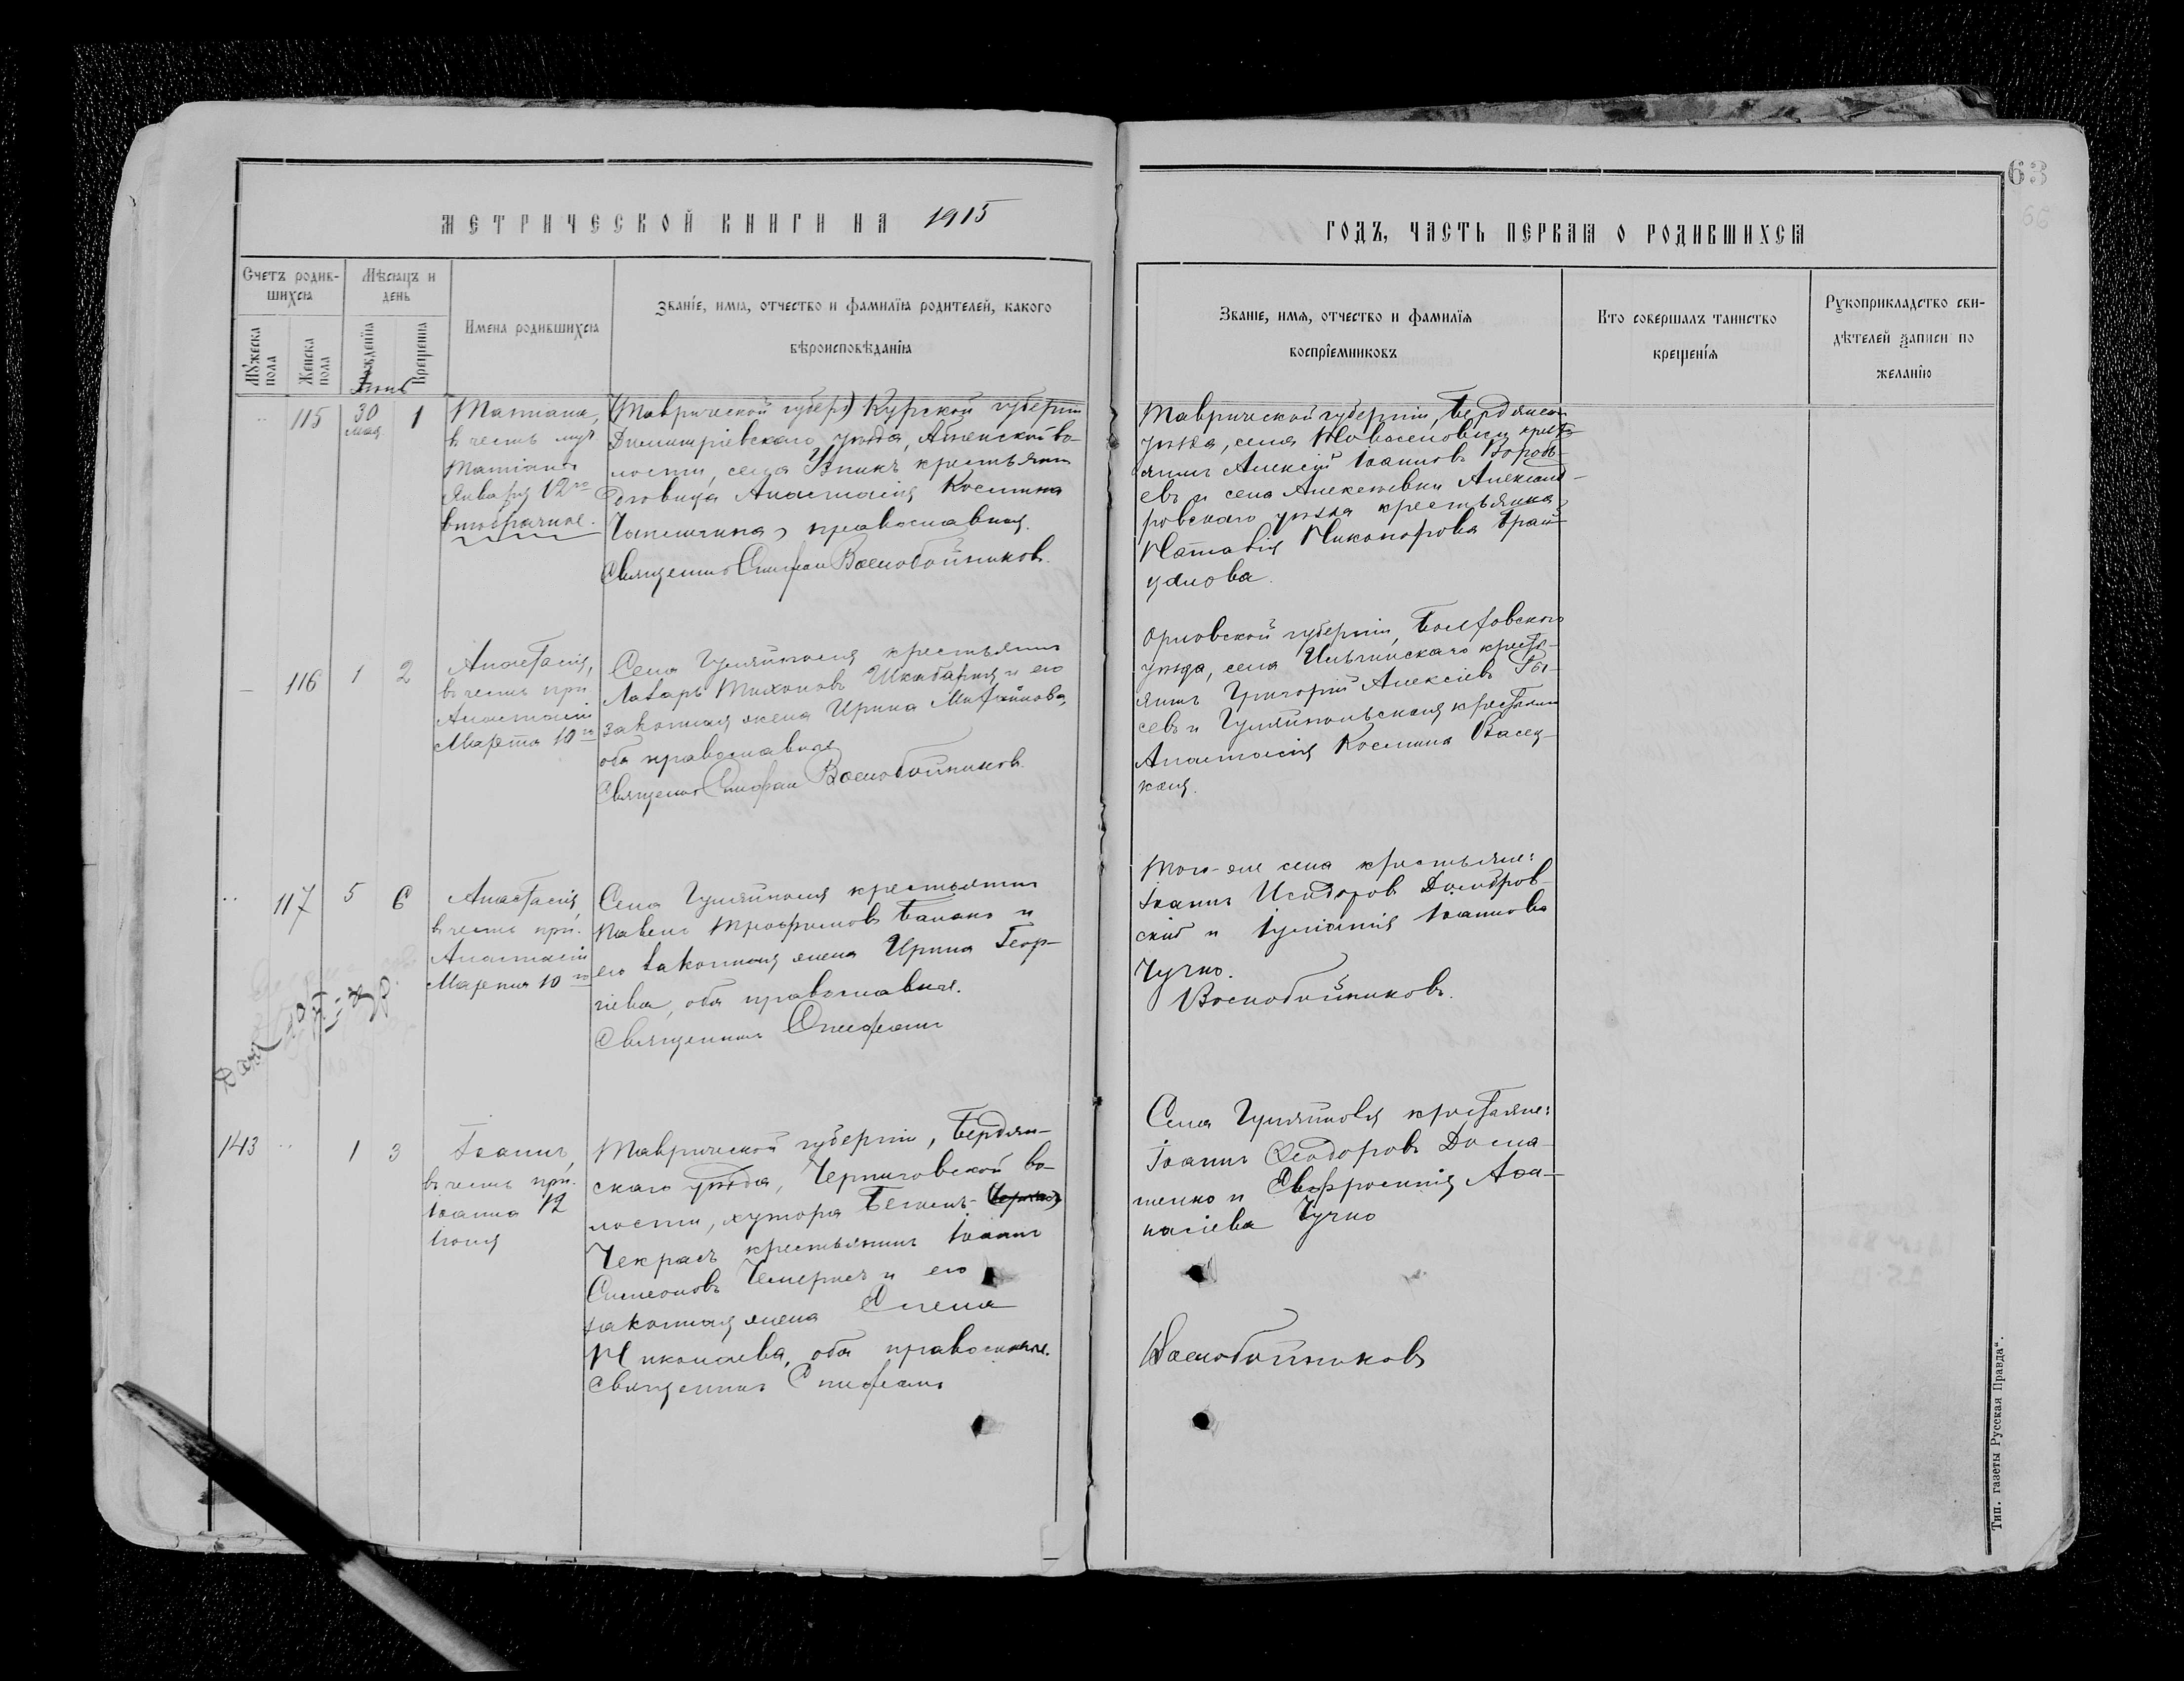 63
МЕТРИЧЕСКОЙ КНИГИ НА 1915
ГОДЪ, ЧАСТЬ ПЕРВАЯ О РОДИВШИХСЯ
Счетъ родив-
шихся
Мѣсяцъ и
день
Мужеска
пола
Женска
пола
Рожденія
Крещенія
Имена родившихся
Званіе, имя, отчество и фамилія родителей, какого
вѣроисповѣданія
Званіе, имя, отчество и фамилія
воспріемниковъ
Кто совершалъ таинство
крещенія
Рукоприкладство сви-
дѣтелей записи по
желанію
Іюнь
115
30
мая
1
Татіана,
въ честь муч
Татіаны
Января 12го
внѣбрачная.
(Таврической губер) Курской губерніи
Димитріевскаго уѣзда, во-
лости, села крестьянка
Анастасія Космина
православная.
Священникъ Епифаній Воскобойниковъ.
Таврической губерніи, Бердянск
уѣзда, села Новоспасовки крест-
янинъ Алексій Іоанновъ Вороб-
евъ и села Алексѣевки Александ-
ровскаго уѣзда крестьянка
Наталія Никонорова
116
1
2
Анастасія,
въ честь при
Анастасіи
Марта 10го
Села Гуляйполя крестьянинъ
Лазарь Тихоновъ и его
законная жена Ирина Митрофанова,
оба православные
Священникъ Епифаній Воскобойниковъ.
Орловской губерніи, Болховского
уѣзда, села Ильинскаго кресть-
янинъ Григорій Алексіевъ Гу-
севъ и Гуляйпольская крестьянка
Анастасія Космина Васец-
кая.
117
5
6
Анастасія,
въ честь при.
Анастасіи
Марта 10го
Села Гуляйполя крестьянинъ
Павелъ Трофимовъ и
его законная жена Ирина Геор-
гіева, оба православные.
Священникъ Епифаній
Того-же села крестьяне:
Іоаннъ Исидоровъ Домбров-
скій и Іуліанія Іоаннова
Чучко.
Воскобойниковъ.
143
1
3
Іоаннъ,
въ честь при.
Іоанна 12
Іюня
Таврической губерніи, Бердян-
скаго уѣзда, Черниговской во-
лости, хутора
крестьянинъ Іоаннъ
Симеоновъ и его
законная жена Елена
Николаева, оба православные.
Священникъ Епифаній
Села Гуляйполя крестьяне:
Іоаннъ Ѳеодоровъ Дома-
шенко и Евфросинія Аѳа-
насіева Чучко
Воскобойниковъ
Тип. газеты Русская Правда".